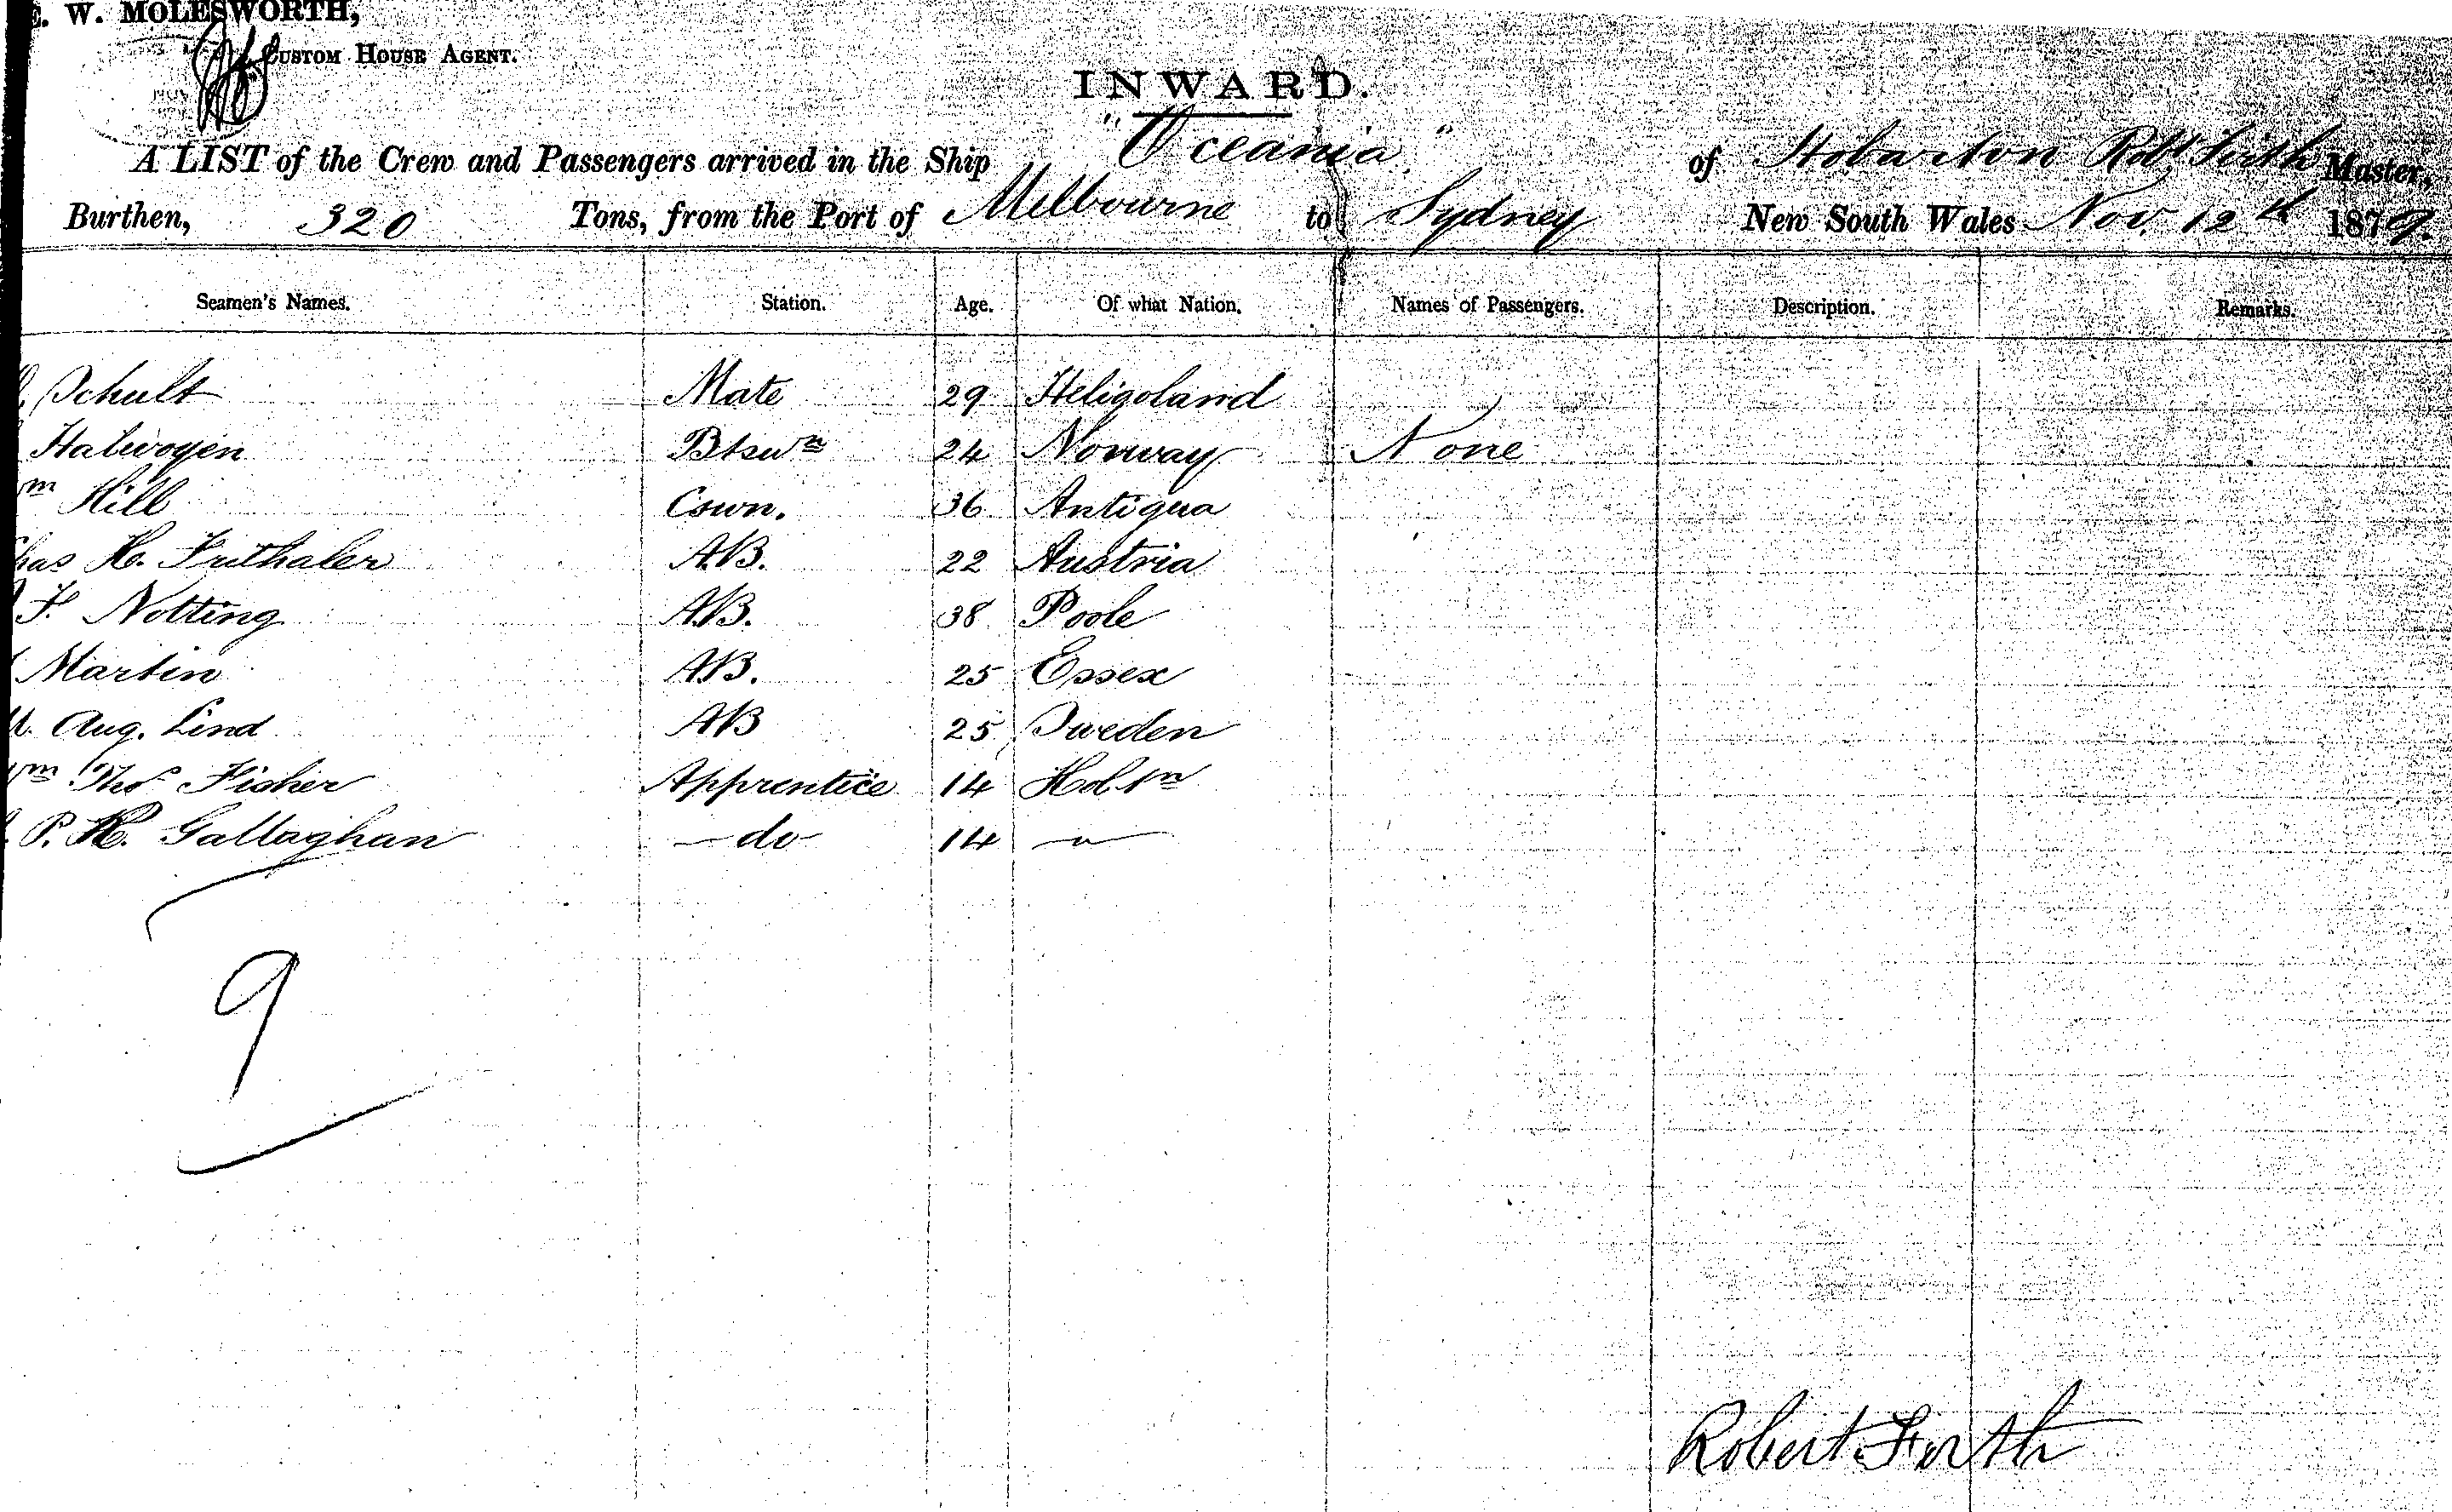 W. MOLESWORTH,
CUSTOM HOUSE AGENT.
INWARD.
A LIST of the Crew and Passengers arrived in the Ship "Oceania" of Hobarton Robt Firth Master,
Burthen, 320 Tons, from the Port of Melbourne to Sydney New South Wales Nov. 12th 1879.
Seamen's Names. Station. Age. Of what Nation. Names of Passengers. Description. Remarks.
Schult Mate 29 Heligoland
Halvogen Btswn 24 Norway None
Wm Hill Cswn. 36 Antigua
Chas H. Fruthaler A.B. 22 Austria
F. Notting A.B. 38 Poole
Martin A.B. 25 Essex
Aug. Lind AB 25 Sweden
Wm Thos Fisher Apprentice 14 Hobtn
P. H. Gallaghan - do - 14 — " —
9
Robert Firth